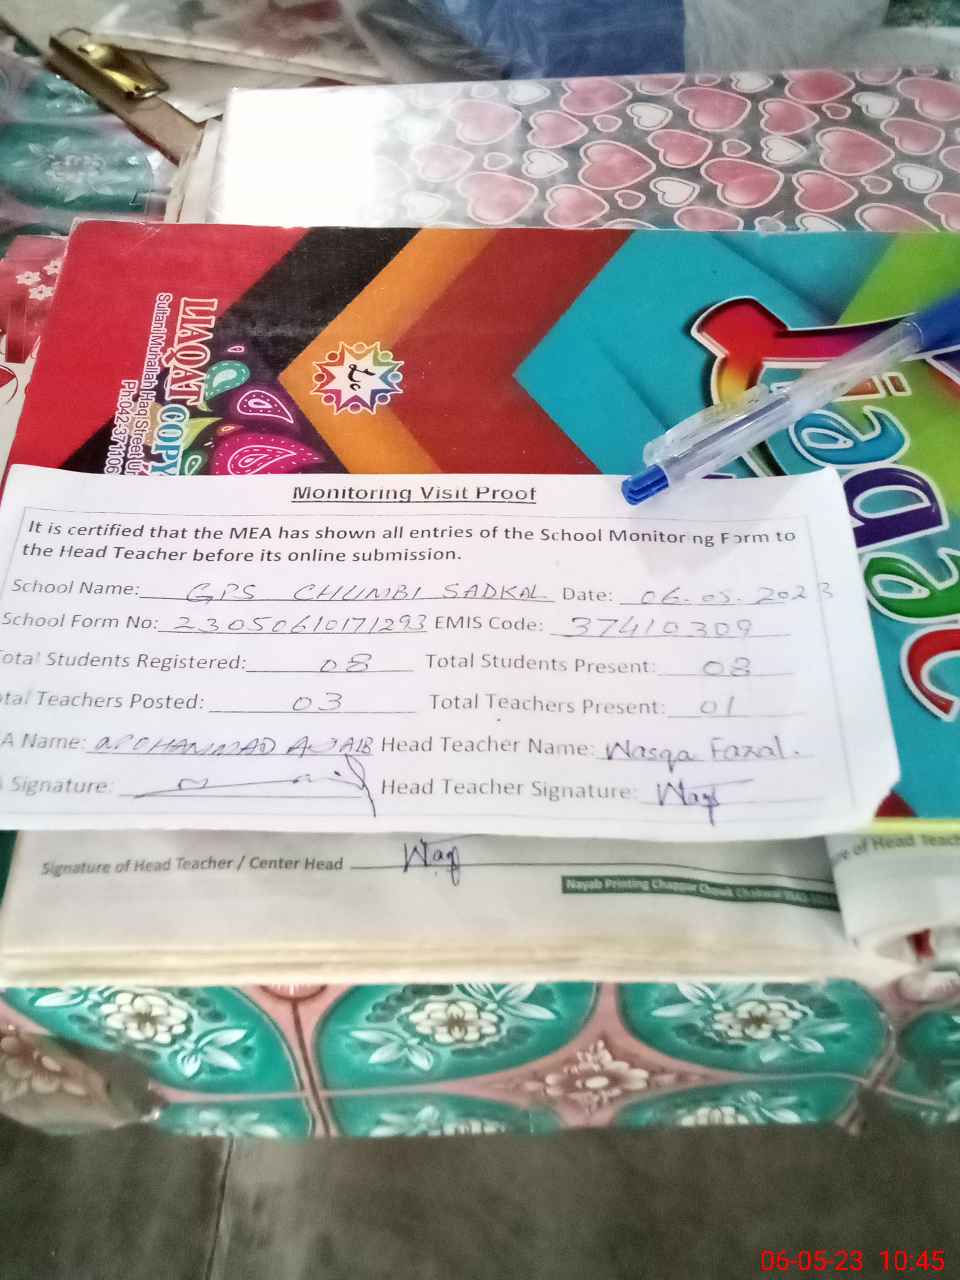 LIAQAT COPY
Sultani Muhallah Haq Street Ur
Ph:042-371106
Lc
Liaqat
Monitoring Visit Proof
It is certified that the MEA has shown all entries of the School Monitoring Form to
the Head Teacher before its online submission.
School Name: GPS CHUMBI SADKAL Date: 06.05.2023
School Form No: 23050610171293 EMIS Code: 37410309
otal Students Registered: 08 Total Students Present: 08
tal Teachers Posted: 03 Total Teachers Present: 01
A Name: MOHAMMAD AJAIB Head Teacher Name: Wasqa Fazal.
Signature: Head Teacher Signature: Waqs
Signature of Head Teacher / Center Head Waq
re of Head Teach
Nayab Printing Chappar Chowk Chakwal
06-05-23 10:45